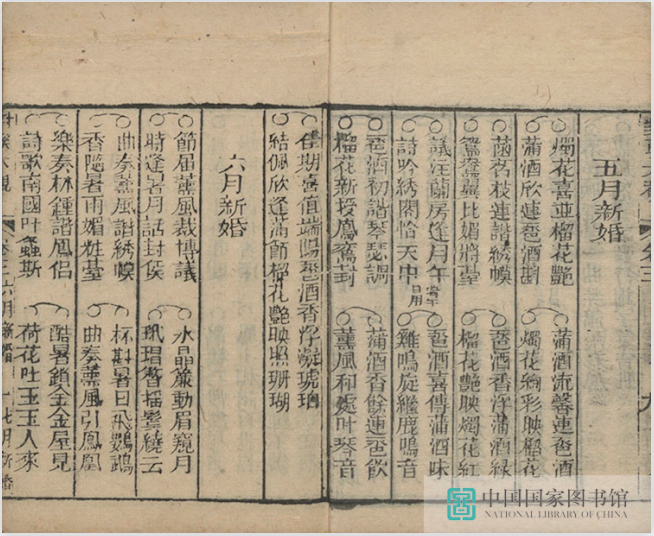 五月新婚
燭花喜並榴花艷
蒲酒欣連卺酒斟
蒲酒流馨連卺酒
燭花絢彩映榴花
菡萏枝連諧綉幙
鴛鴦翼比媚
卺酒香浮蒲酒綠
榴花艷映燭花紅
蘭房逢月午
詩吟綉閣恰天中
端午日用
卺酒喜傳蒲酒味
雞鳴旋繼鹿鳴音
卺酒初諧琴瑟調
榴花新授鳳鸞封
蒲酒香餘連卺飲
薰風和處叶琴音
佳期喜值端陽卺酒香浮凝琥珀
結佩欣逢蒲節榴花艷映照珊瑚
六月新婚
節屆薰風裁博議
時逢暑月話封侯
水晶簾動眉窺月
玳瑁簪插鬢繞云
曲奏薰風諧綉幙
香隨暑雨媚粧臺
杯斟暑日飛鸚鵡
曲奏薰風引鳳凰
樂奏林鍾諧鳳侶
詩歌南國叶螽斯
酷暑鎖金金屋見
荷花吐玉玉人來
卷三 六月新婚 七月新婚
中国国家图书馆
NATIONAL LIBRARY OF CHINA